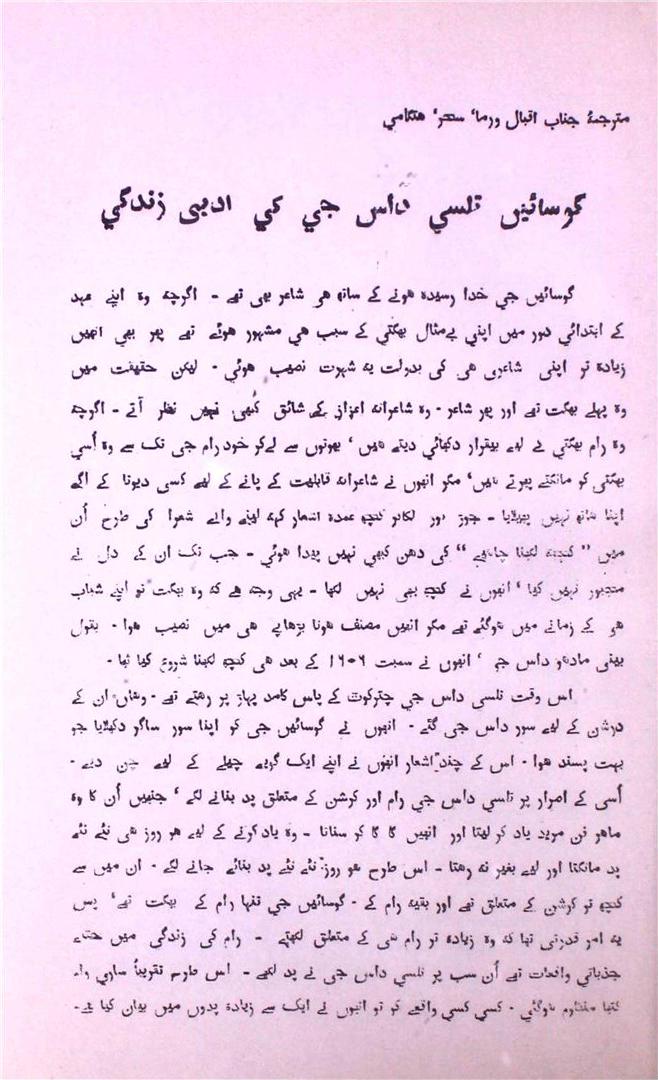 مترجمۂ جناب اقبال ورما، سحر، هتگامي
گوسائیں تلسي داس جي کي ادبی زندگي
گوسائیں جي خدا رسیدہ هونے کے ساتھ هی شاعر بھی تھے - اگرچہ وہ اپنے عہد
کے ابتدائي دور میں اپني بےمثال بھگتی کے سبب هي مشہور هوئے تھے پھر بھی انھیں
زیادہ تو اپنی شاعری هی کی بدولت یہ شہرت نصیب هوئي - لیکن حقیقت میں
وہ پہلے بھگت تھے اور پھر شاعر - وہ شاعرانہ اعزاز کے شائق کبھی نہیں نظر آتے - اگرچہ
وہ رام بھگتی کے لیے بیقرار دکھائي دیتے هیں، بھوتوں سے لےکر خود رام جی تک سے وہ اُسی
بھگتی کو مانگتے پھرتے هیں، مگر انھوں نے شاعرانہ قابلیت کے پانے کے لیے کسی دیوتا کے آگے
اپنا هاتھ نہیں پھیلایا - جوڑ اور لگاکر کچھ عمدہ اشعار کہہ لینے والے شعرا کی طرح اُن
میں ”کچھ لکھنا چاهیے“ کی دھن کبھی نہیں پیدا هوئي - جب تک ان کے دل نے
مجبور نہیں کیا، انھوں نے کچھ بھی نہیں لکھا - یہی وجہ هے کہ وہ بھگت تو اپنے شباب
هی کے زمانے میں هوگئے تھے مگر انھیں مصنف هونا بڑھاپے هی میں نصیب هوا - بقول
بینی مادھو داس جی، انھوں نے سمبت ۱۶۰۶ کے بعد هی کچھ لکھنا شروع کیا تھا -
اس وقت تلسی داس جي چترکوٹ کے پاس کامد پہاڑ پر رهتے تھے - وهاں ان کے
درشن کے لیے سور داس جی گئے - انھوں نے گوسائیں جی کو اپنا سور ساگر دکھلایا جو
بہت پسند هوا - اس کے چند اشعار انھوں نے اپنے ایک گویے چیلے کے لیے چن دیے -
اُسی کے اصرار پر تلسی داس جی رام اور کرشن کے متعلق پد بنانے لگے، جنھیں اُن کا وہ
ماهر فن مرید یاد کر لیتا اور انھیں گا گا کر سناتا - وہ یاد کرنے کے لیے هر روز هی نئے نئے
پد مانگتا اور لیے بغیر نہ رهتا - اس طرح هر روز نئے نئے پد بنائے جانے لگے - ان میں سے
کچھ تو کرشن کے متعلق تھے اور بقیہ رام کے - گوسائیں جی تنہا رام کے بھگت تھے، پس
یہ امر قدرتی تھا کہ وہ زیادہ تر رام هی کے متعلق لکھتے - رام کی زندگی میں جتنے
جذباتی واقعات تھے اُن سب پر تلسی داس جی نے پد لکھے - اس طرح تقریباً ساری رام
کتھا منظوم هوگئي - کسی کسی واقعے کو تو انھوں نے ایک سے زیادہ پدوں میں بیان کیا هے -